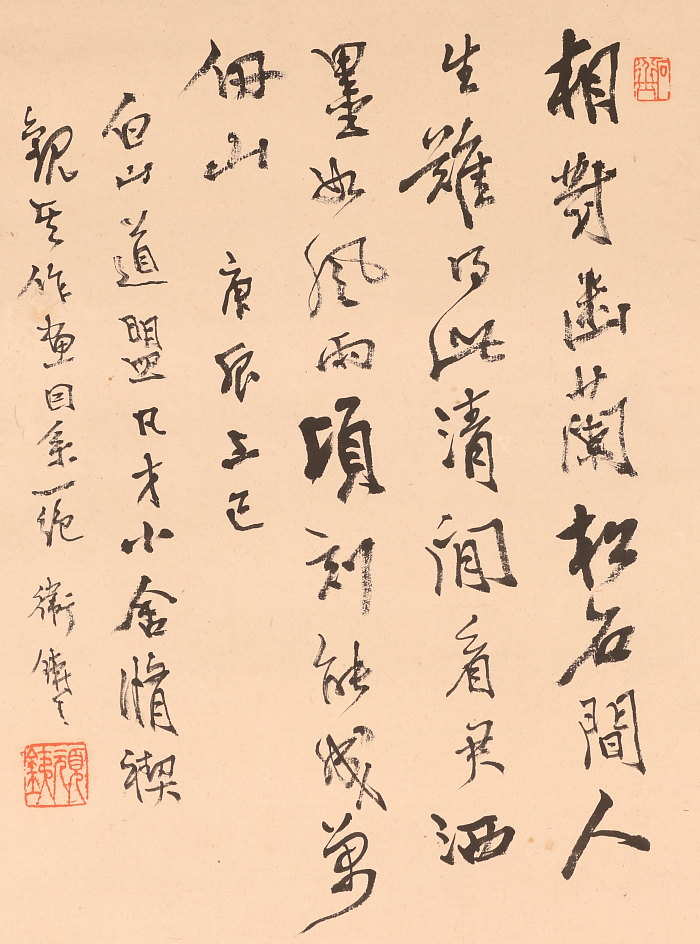 相對幽蘭松石間人
生難得此清閒看君洒
墨如風雨頃刻能成萬
仞山 庚辰上巳
伯山道盟兄于小舍脩禊
觀其作畫因系一絕 衛鑄生
頑銕